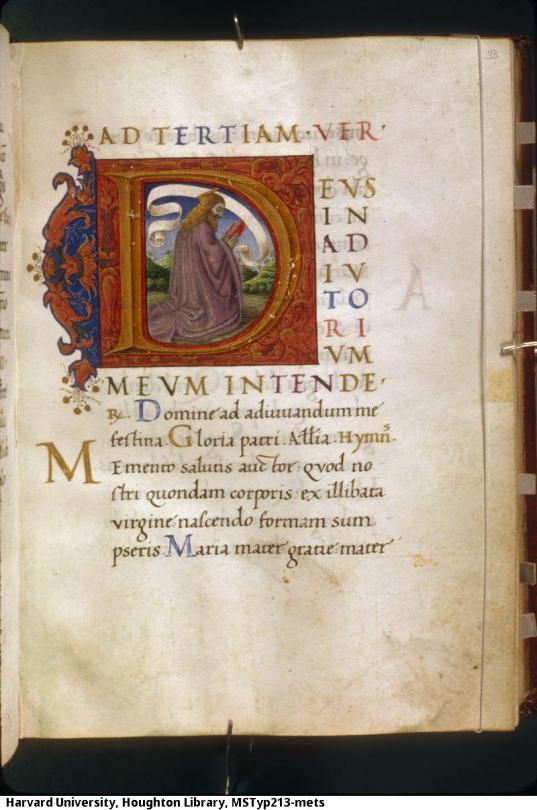 33
AD TERTIAM · VER ·
D
EVS
IN
AD
IV
TO
RI
VM
MEVM INTENDE ·
℞. Domine ad adiuuandum me
festina. Gloria patri. Allia. Hymnꝰ.
MEmento salutis auctor: quod no
stri quondam corporis: ex illibata
virgine nascendo formam sum
pseris. Maria mater gratie: mater
Harvard University, Houghton Library, MSTyp213-mets